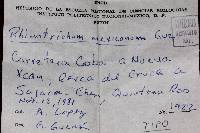 ENCB
HERBARIO DE LA ESCUELA NACIONAL DE CIENCIAS BIOLOGICAS
INSTITUTO POLITECNICO NACIONAL-MEXICO, D. F.
Rhinotrichum mexicanum Guz.
Carretera Coba a Nuevo
Xcan, cerca del Cruce a
Quintana Roo
Nov. 12, 1981
A. Lopez
1983
G. Guzmán
TIPO